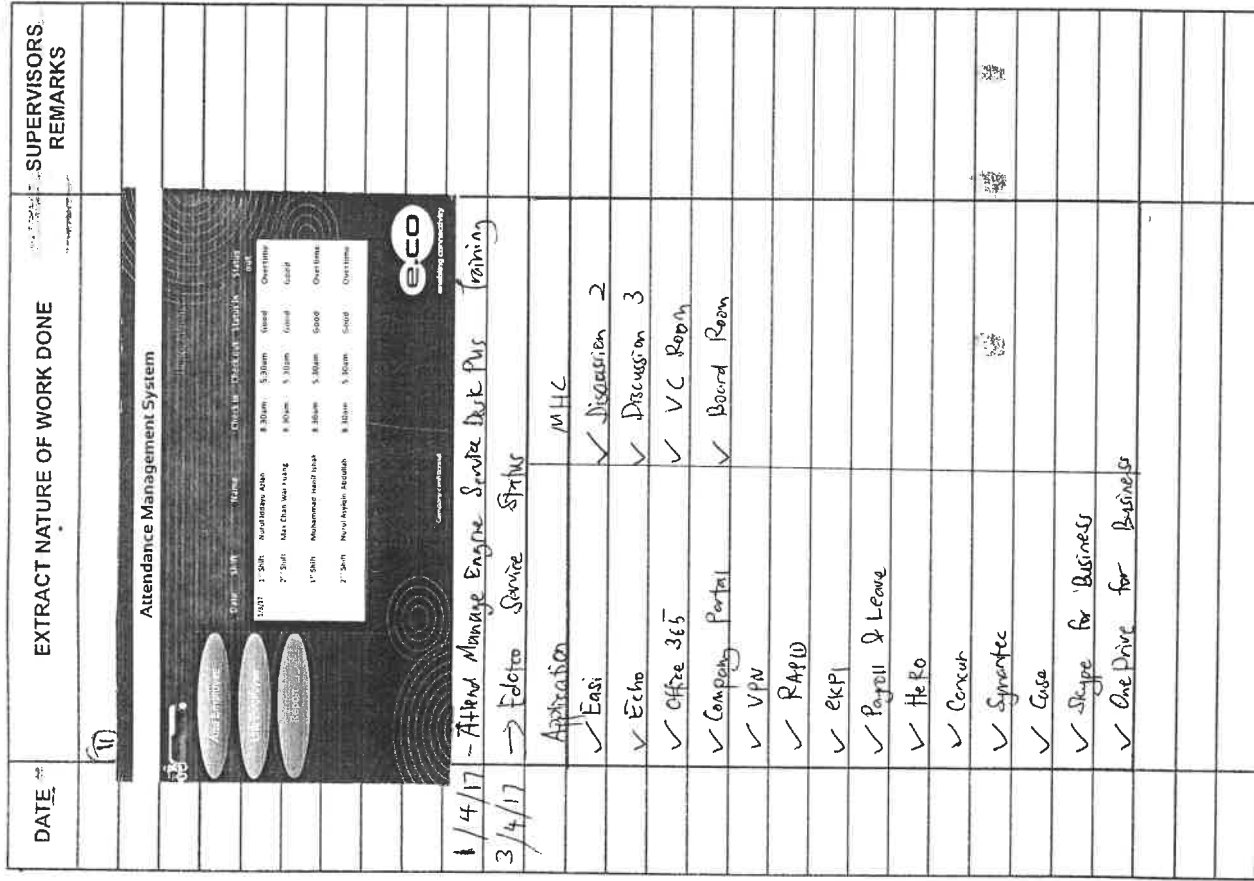 DATE EXTRACT NATURE OF WORK DONE SUPERVISORS REMARKS
11
Attendance Management System
Date Shift Name Check In Check Out Status In Status out
1/4/17 1st Shift Nurul Iddayu Azlan 8.30am 5.30am Good Overtime
2nd Shift Max Chan Wai Kuang 8.30am 5.30am Good Good
1st Shift Muhammad Hanif Ishak 8.30am 5.30am Good Overtime
2nd Shift Nurul Asyiqin Abdullah 8.30am 5.30am Good Overtime
Report
Company confidential
e.co
enabling connectivity
1/4/17 - Attend Manage Engine Service Desk Pus Training
3/4/17 → Edotco Service Status
Application MHC
✓ Easi ✓ Discussion 2
✓ Echo ✓ Discussion 3
✓ Office 365 ✓ VC Room
✓ Company Portal ✓ Board Room
✓ VPN
✓ RAPID
✓ eKPI
✓ Payroll & Leave
✓ HeRo
✓ Concur
✓ Symantec
✓ Case
✓ Skype for Business
✓ One Drive for Business